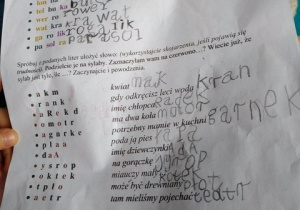 lo bu
ten bu ka
ro wer rower
wat kra krawat
ga ro lik rogalik
pa sol ra parasol
Spróbuj z podanych liter ułożyć słowo: (wykorzystajcie skojarzenia, jeśli pojawią się
trudności). Podzielcie je na sylaby. Zaznaczyłam wam na czerwono…? Wiecie już, że
sylab jest tyle, ile …? Zaczynajcie i powodzenia.
a k m kwiat mak
r a n k gdy odkręcisz leci woda kran
a R e k d imię chłopca Radek
o m o t r ma dwa koła motor
a g n r k e potrzebny mamie w kuchni garnek
p l a a podaj ją pies
d a A imię dziewczynki Ada
y s r o p na gorączkę syrop
o k t e k miauczy mały kotek
t p ł o może być drewniany płot
a e t r tam mieliśmy pojechać teatr